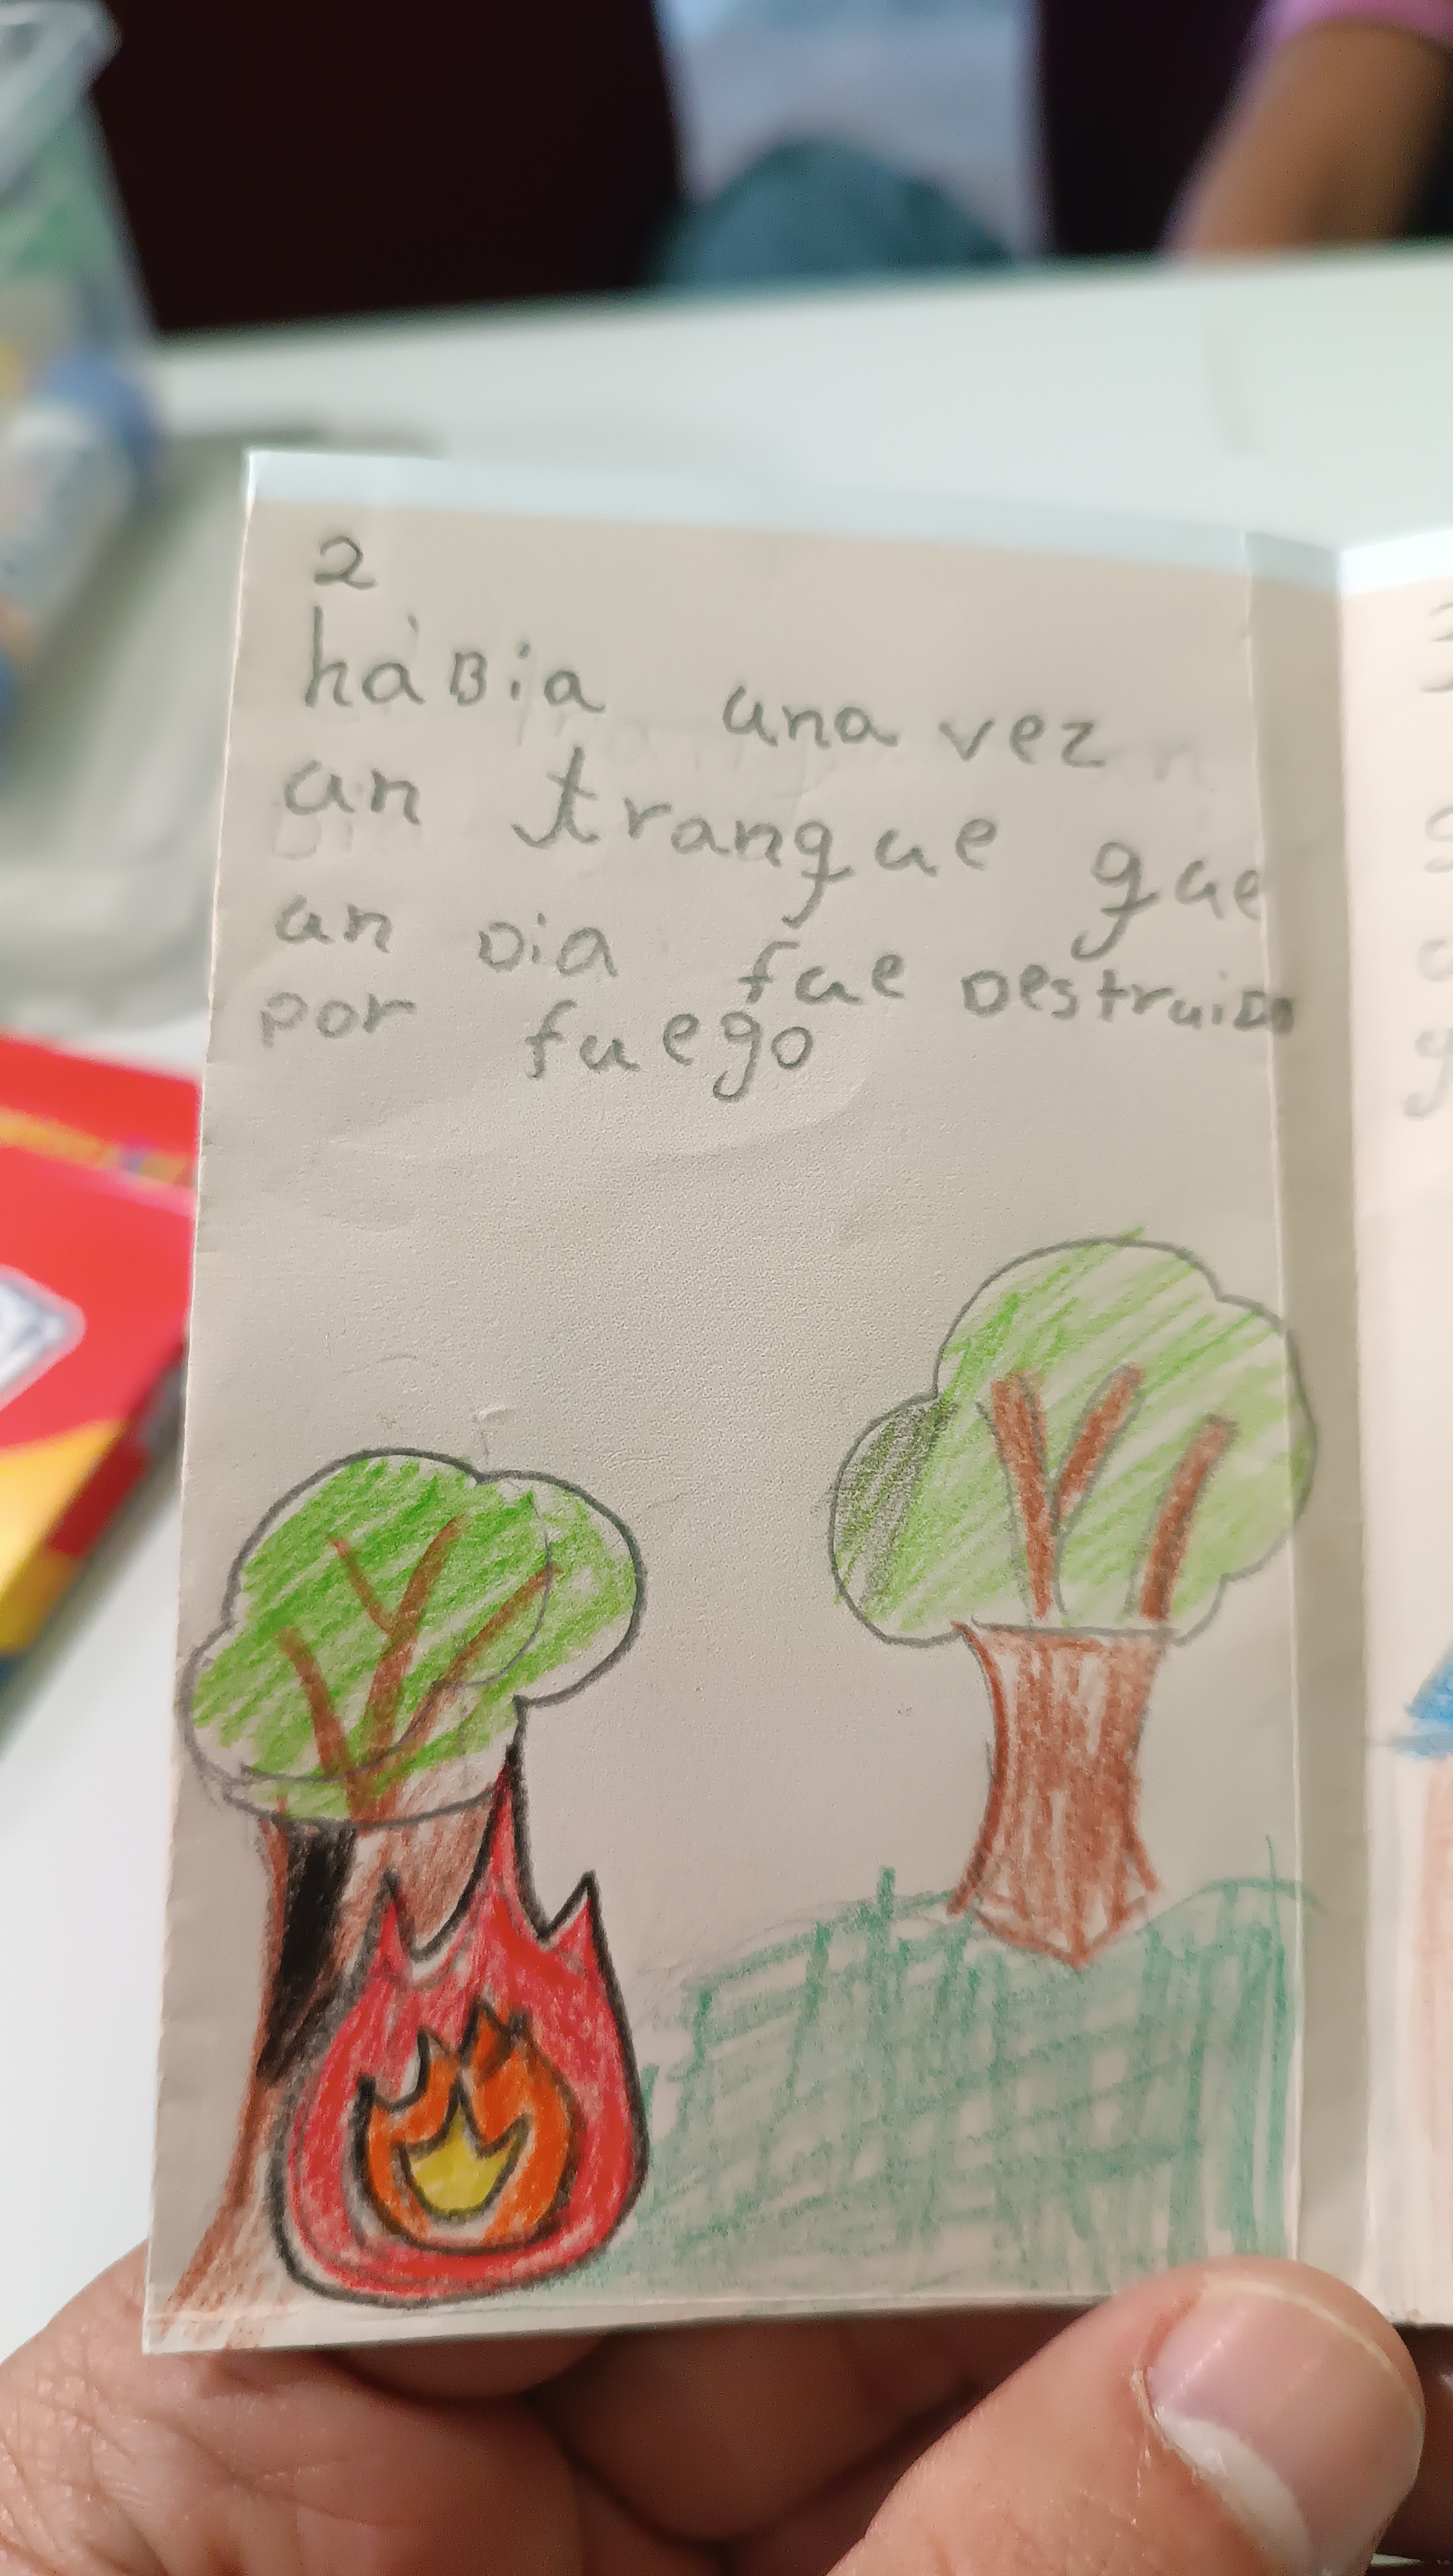 2
hàBia una vez
un tranque que
un Dia fue Destruido
por fuego